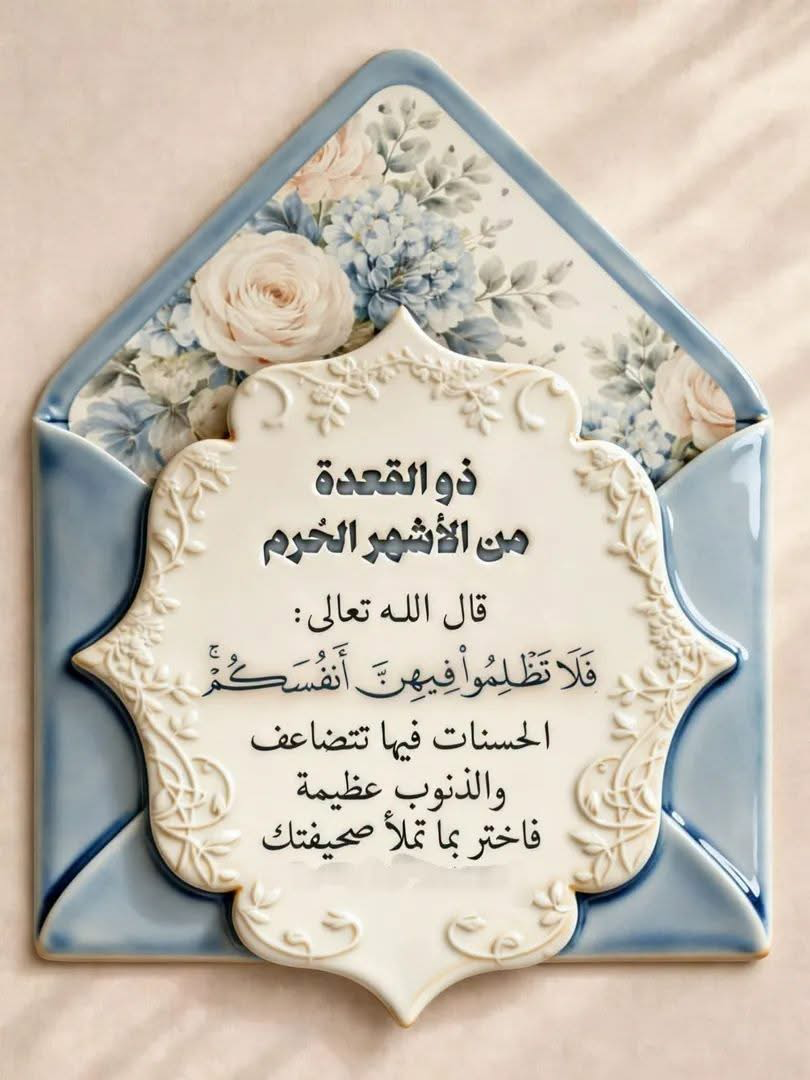 ذو القعدة
من الأشهر الحُرم
قال الله تعالى:
فَلَا تَظْلِمُوا۟ فِيهِنَّ أَنفُسَكُمْ ۚ
الحسنات فيها تتضاعف
والذنوب عظيمة
فاختر بما تملأ صحيفتك